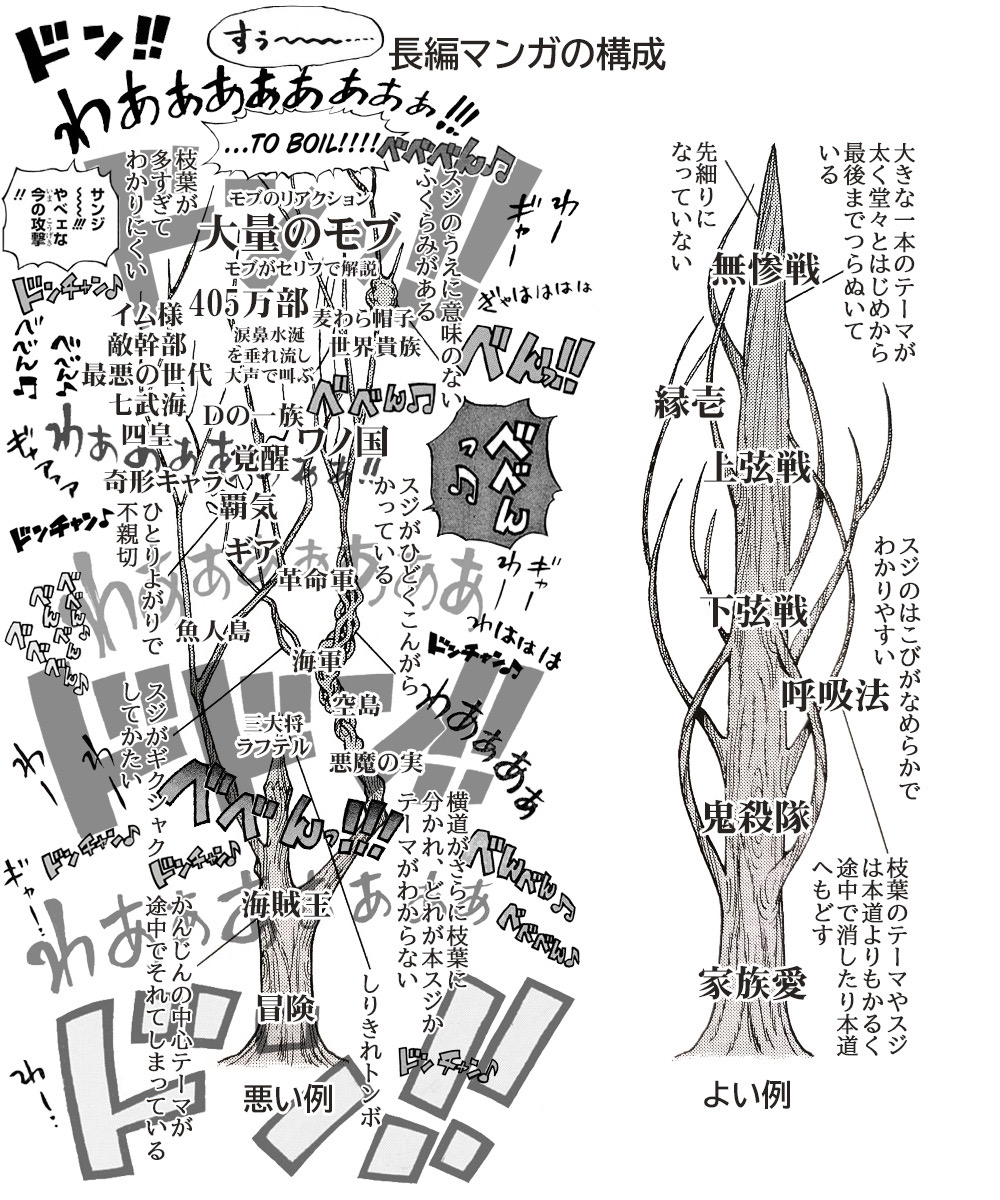 長編マンガの構成
ドン!!
すぅ〜〜〜〜……
わあぁあぁああぁぁぁ!!!
...TO BOIL!!!!
べべべん♫
ドン!!
枝葉が
多すぎて
わかりにくい
サンジ
〜〜〜!!!
やべェな
今の攻撃
!!
モブのリアクション
大量のモブ
モブがセリフで解説
スジのうえに意味のない
ふくらみがある
ギャー
わー
ドンチャン♪
ぎゃははははは
405万部
イム様
敵幹部
最悪の世代
七武海
四皇
奇形キャラ
涙鼻水涎
を垂れ流し
大声で叫ぶ
麦わら帽子
世界貴族
べんっ!!
べべん♫
Dの一族
ワノ国
覚醒
覇気
ギア
革命軍
べべん
っ♫
ギャアァァ
ドンチャン♪
ひとりよがりで
不親切
スジがひどくこんがら
かっている
わー
ギャー
魚人島
海軍
空島
三大将
ラフテル
悪魔の実
わははは
ドンチャン♫
わあぁああ
ドドン!!
スジがギクシャク
してかたい
わー
べべんっ!!!
横道がさらに枝葉に
分かれ、どれが本スジか
テーマがわからない
ドンチャン♪
ドンチャン♪
ギャー…
べんべん♫
べべべん♫
海賊王
冒険
かんじんの中心テーマが
途中でそれてしまっている
しりきれトンボ
ドンチャン♫
わー…
ドン!!
悪い例
大きな一本のテーマが
太く堂々とはじめから
最後までつらぬいて
いる
先細りに
なっていない
無惨戦
縁壱
上弦戦
下弦戦
スジのはこびがなめらかで
わかりやすい
呼吸法
鬼殺隊
枝葉のテーマやスジ
は本道よりもかるく
途中で消したり本道
へもどす
家族愛
よい例